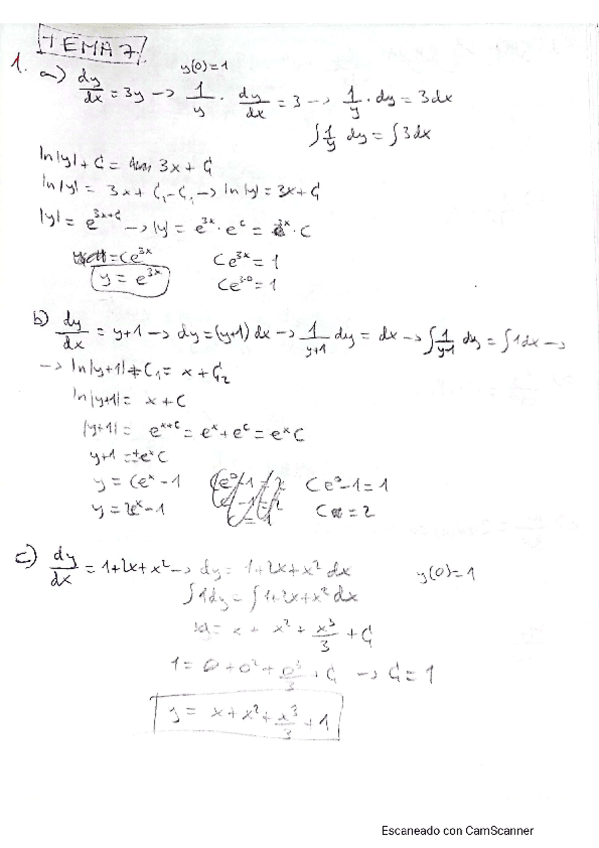 TEMA 7.
1. a) dy/dx = 3y → 1/y · dy/dx = 3 → 1/y · dy = 3dx
y(0)=1
∫ 1/y dy = ∫ 3dx
ln|y| + C = 3x + C₁
ln|y| = 3x + C₁ - C₁ → ln|y| = 3x + C₁
|y| = e^(3x+C) → |y| = e^(3x) · e^c = e^(3x) · C
= Ce^(3x) Ce^(3x) = 1
y = e^(3x) Ce^(3·0) = 1
b) dy/dx = y+1 → dy = (y+1) dx → 1/(y+1) dy = dx → ∫ 1/(y+1) dy = ∫ 1dx →
→ ln|y+1| + C₁ = x + C₂
ln|y+1| = x + C
|y+1| = e^(x+c) = e^x + e^c = e^x C
y+1 = ±e^x C
y = Ce^x - 1 Ce⁰ - 1 = 1
y = 2e^x - 1 C = 2
c) dy/dx = 1+2x+x² → dy = 1+2x+x² dx y(0)=1
∫ 1dy = ∫ 1+2x+x² dx
= x + x² + x³/3 + C₁
1 = 0 + 0² + 0³/3 + C₁ → C₁ = 1
y = x + x² + x³/3 + 1
Escaneado con CamScanner